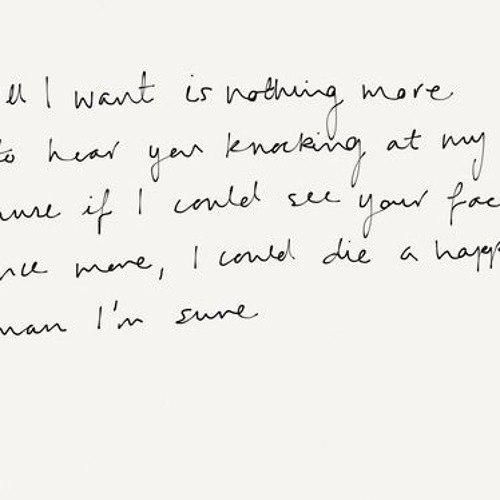 ll I want is nothing more
to hear you knocking at my
ause if I could see your fac
nce more, I could die a happ
man I'm sure